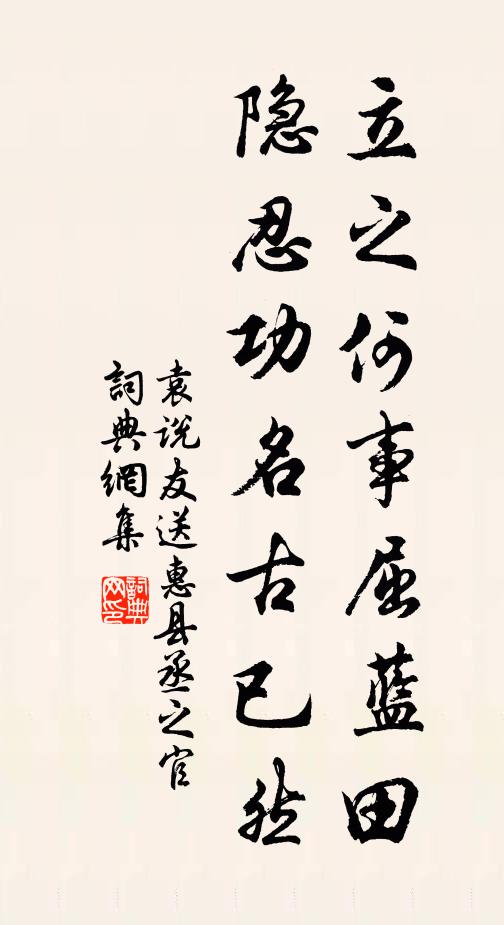 立之何事屈藍田
隐忍功名古已然
袁说友送惠县丞之官
詞典網集
詞典網印